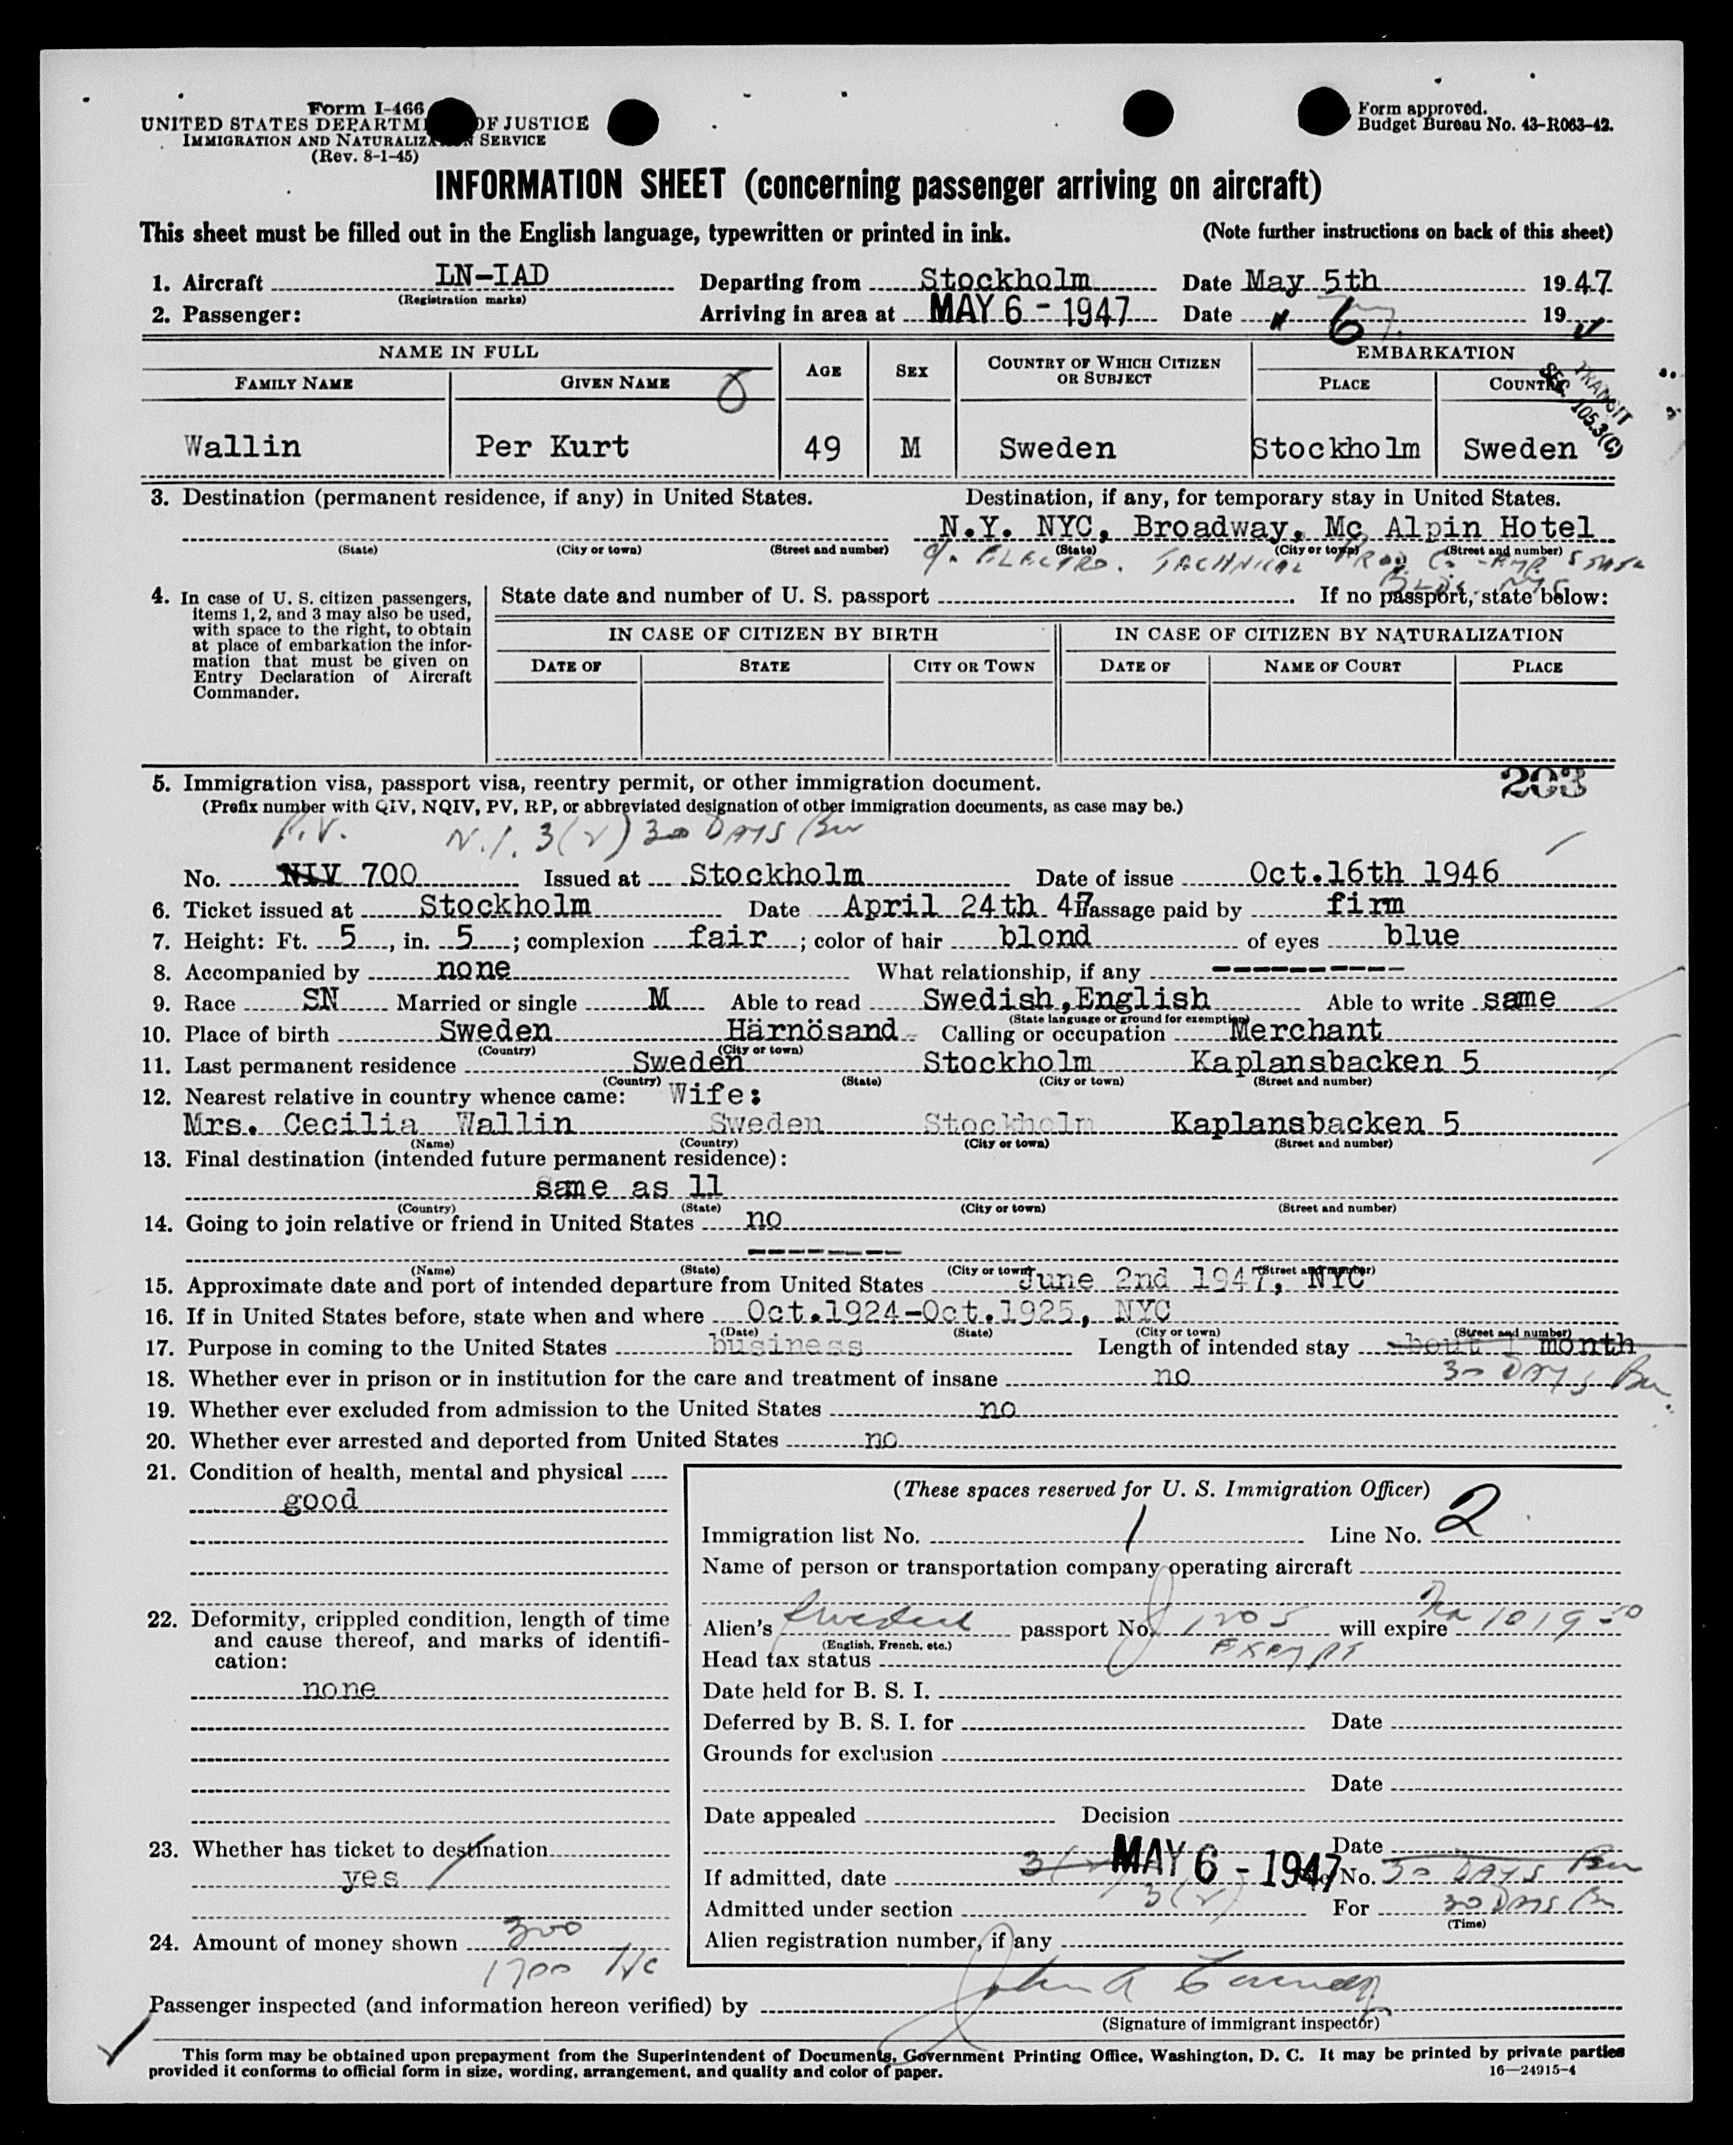 Form I-466
UNITED STATES DEPARTMENT OF JUSTICE
IMMIGRATION AND NATURALIZATION SERVICE
(Rev. 8-1-45)
Form approved.
Budget Bureau No. 43-R063-42.
INFORMATION SHEET (concerning passenger arriving on aircraft)
This sheet must be filled out in the English language, typewritten or printed in ink. (Note further instructions on back of this sheet)
1. Aircraft LN-IAD Departing from Stockholm Date May 5th 1947
(Registration marks)
2. Passenger: Arriving in area at MAY 6 - 1947 Date " 6 19
NAME IN FULL AGE SEX COUNTRY OF WHICH CITIZEN OR SUBJECT EMBARKATION
FAMILY NAME GIVEN NAME PLACE COUNTRY
TRANSIT
SEC. 105.3(C)
Wallin Per Kurt 49 M Sweden Stockholm Sweden
3. Destination (permanent residence, if any) in United States. Destination, if any, for temporary stay in United States.
N.Y. NYC, Broadway, Mc Alpin Hotel
(State) (City or town) (Street and number) (State) (City or town) (Street and number)
ELECTRO. TECHNICAL PROD. Co - EMP. STATE
BLDG. NYC
4. In case of U. S. citizen passengers, items 1, 2, and 3 may also be used, with space to the right, to obtain at place of embarkation the information that must be given on Entry Declaration of Aircraft Commander.
State date and number of U. S. passport . If no passport, state below:
IN CASE OF CITIZEN BY BIRTH IN CASE OF CITIZEN BY NATURALIZATION
DATE OF STATE CITY OR TOWN DATE OF NAME OF COURT PLACE
203
5. Immigration visa, passport visa, reentry permit, or other immigration document.
(Prefix number with QIV, NQIV, PV, RP, or abbreviated designation of other immigration documents, as case may be.)
P.V. N.I. 3(2) 30 DAYS
No. NIV 700 Issued at Stockholm Date of issue Oct.16th 1946
6. Ticket issued at Stockholm Date April 24th 47 Passage paid by firm
7. Height: Ft. 5, in. 5; complexion fair; color of hair blond of eyes blue
8. Accompanied by none What relationship, if any ----------
9. Race SN Married or single M Able to read Swedish,English Able to write same
(State language or ground for exemption)
10. Place of birth Sweden Härnösand Calling or occupation Merchant
(Country) (City or town)
11. Last permanent residence Sweden Stockholm Kaplansbacken 5
(Country) (State) (City or town) (Street and number)
12. Nearest relative in country whence came: Wife:
Mrs. Cecilia Wallin Sweden Stockholm Kaplansbacken 5
(Name) (Country) (City or town) (Street and number)
13. Final destination (intended future permanent residence):
same as 11
(Country) (State) (City or town) (Street and number)
14. Going to join relative or friend in United States no
--------
(Name) (State) (City or town) (Street and number)
15. Approximate date and port of intended departure from United States June 2nd 1947, NYC
16. If in United States before, state when and where Oct.1924-Oct.1925, NYC
(Date) (State) (City or town) (Street and number)
17. Purpose in coming to the United States business Length of intended stay about 1 month
30 DAYS
18. Whether ever in prison or in institution for the care and treatment of insane no
19. Whether ever excluded from admission to the United States no
20. Whether ever arrested and deported from United States no
21. Condition of health, mental and physical
good
22. Deformity, crippled condition, length of time and cause thereof, and marks of identification:
none
23. Whether has ticket to destination
yes
24. Amount of money shown 300
1700 H/C
(These spaces reserved for U. S. Immigration Officer)
Immigration list No. 1 Line No. 2
Name of person or transportation company operating aircraft
Alien's Swedish passport No. 1205 will expire 10 1950
(English, French, etc.)
Head tax status EXEMPT
Date held for B. S. I.
Deferred by B. S. I. for Date
Grounds for exclusion
Date
Date appealed Decision
Date
If admitted, date 3(2) MAY 6 - 1947 No. 30 DAYS
Admitted under section 3(2) For 30 DAYS
(Time)
Alien registration number, if any
Passenger inspected (and information hereon verified) by John A
(Signature of immigrant inspector)
This form may be obtained upon prepayment from the Superintendent of Documents, Government Printing Office, Washington, D. C. It may be printed by private parties
provided it conforms to official form in size, wording, arrangement, and quality and color of paper. 16—24915-4